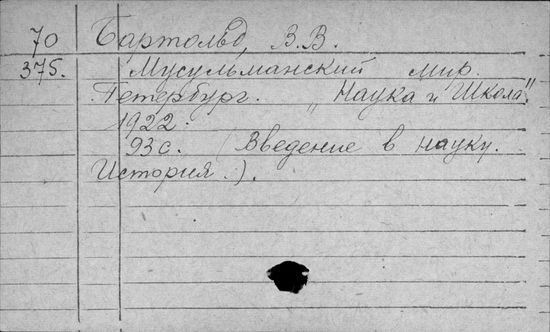 70 Бартольд, В.В.
375. Мусульманский мир.
Петербург. "Наука и Школа".
1922.
93с. (Введение в науку.
История.).